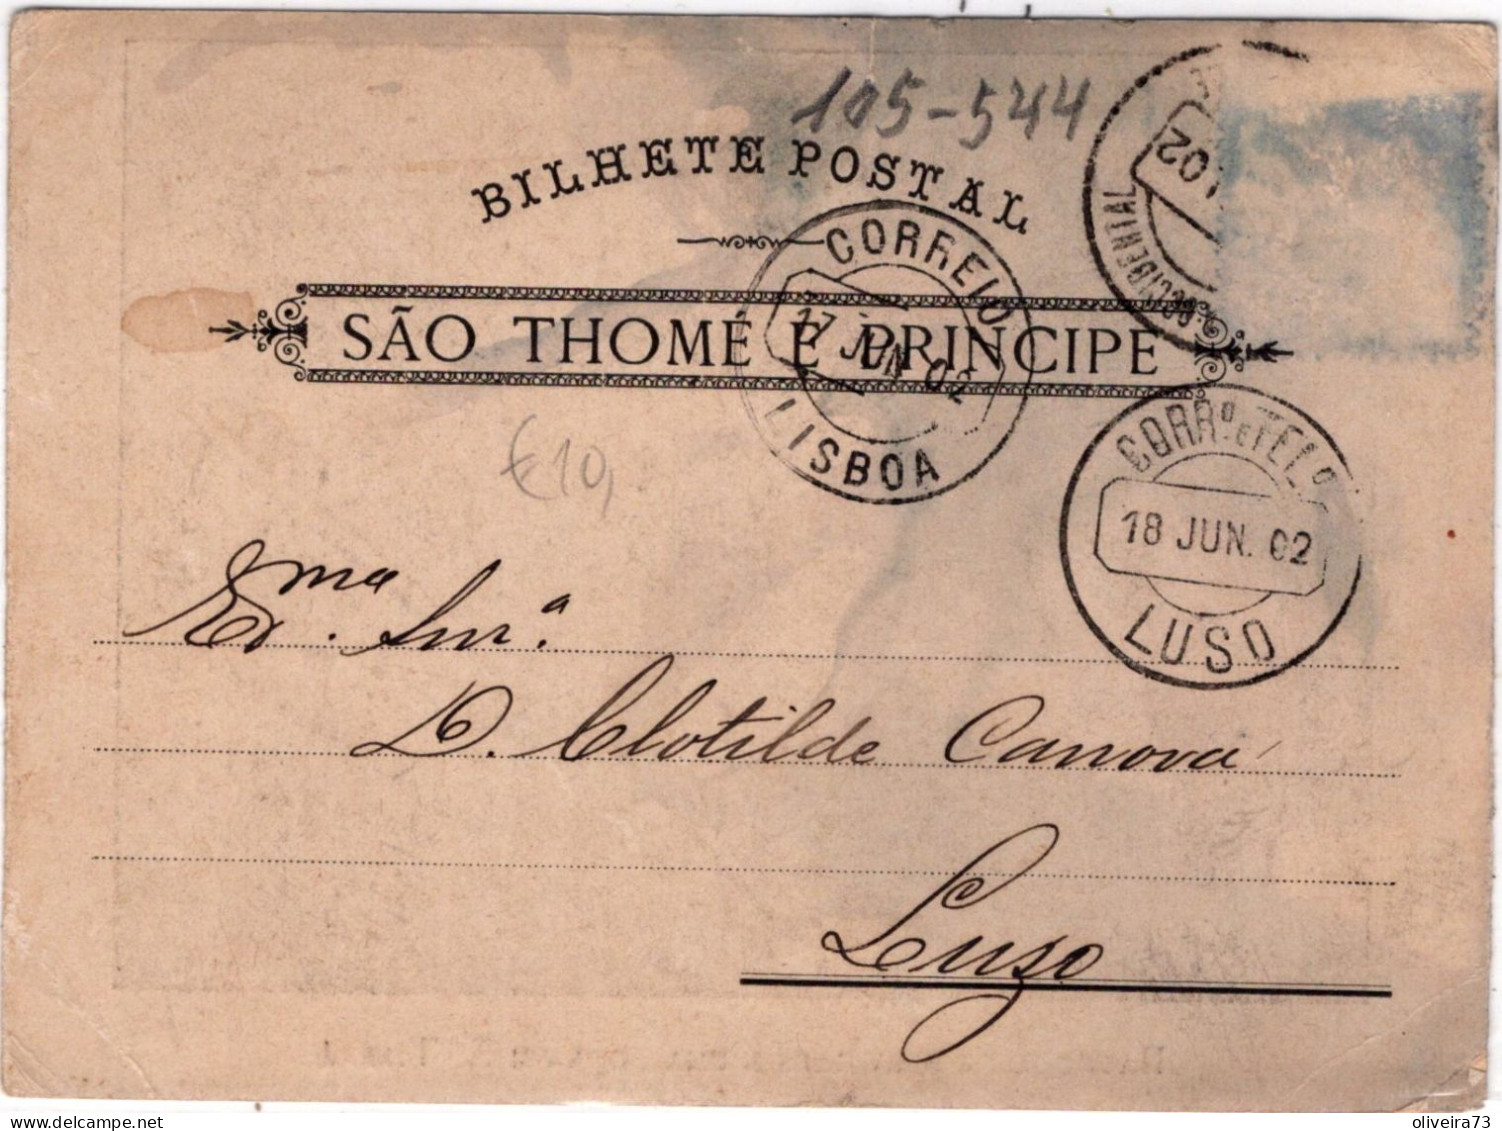 105-544
BILHETE POSTAL
SÃO THOMÉ E PRINCIPE
CORREIO
17 JUN 02
LISBOA
OCCIDENTAL
02
CORRº E TELº
18 JUN. 02
LUSO
€10,
Exma. Snrª.
D. Clotilde Canova
Luzo
oliveira73